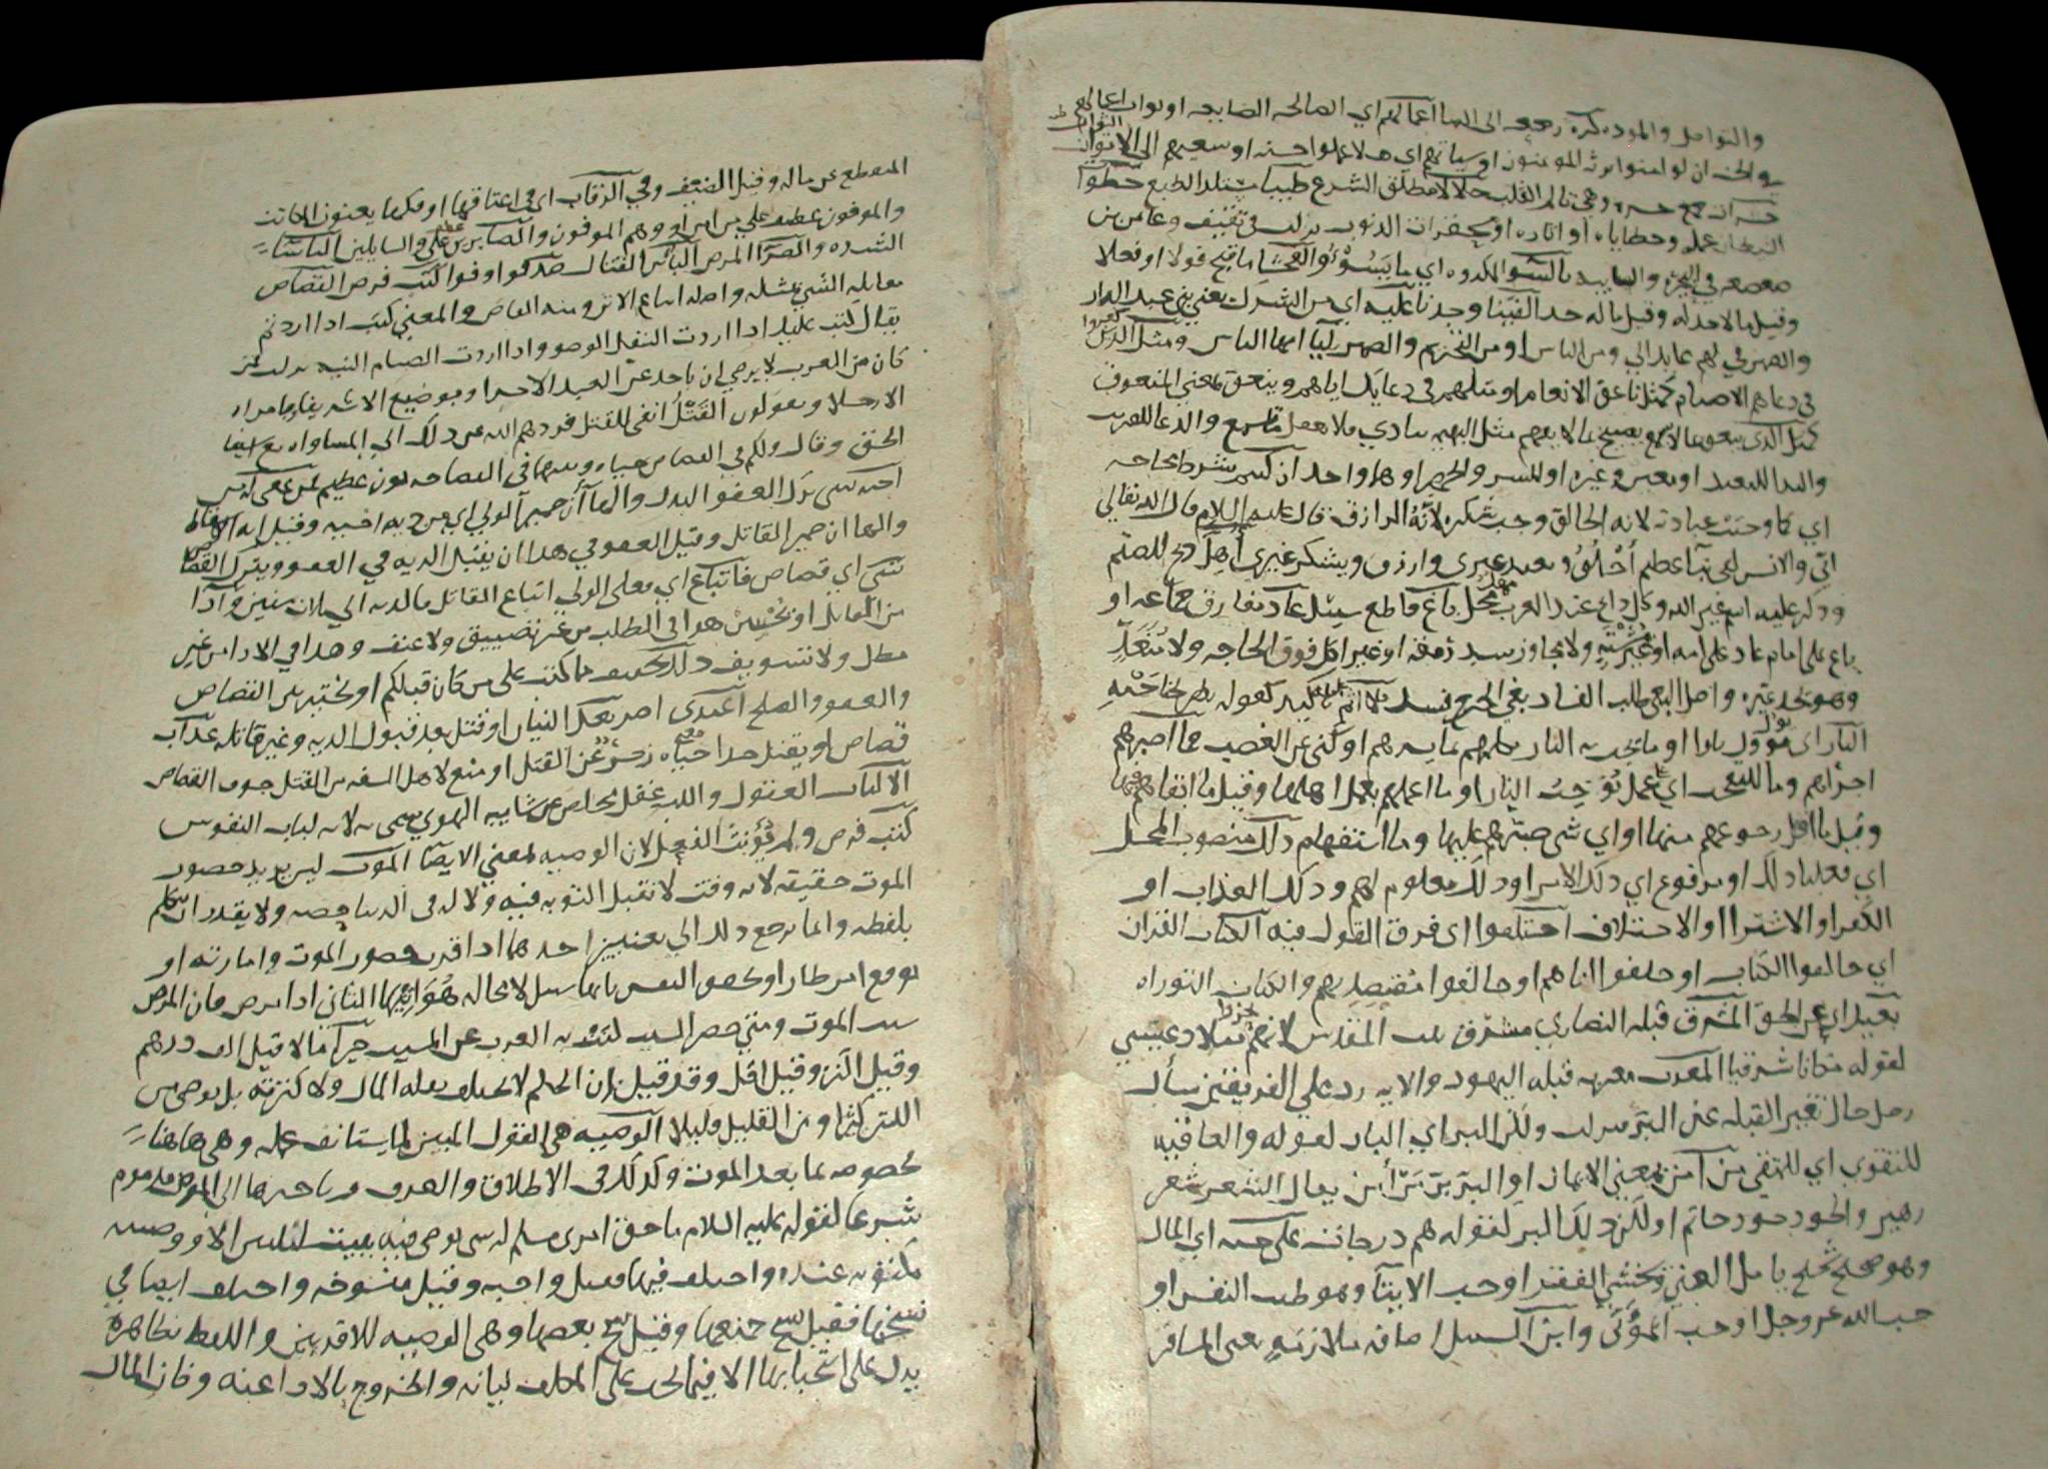 والتواصل والموده كره رجعه الى الدنيا اعمالهم اي الصالحه الضايعه او ثواب اعمالهم
والجنه ان لو امنوا يرث المومنون او سياتهم اي هلا عملوا حسنه او سعيهم الى الاوثان
حسرات جمع حسره وهي تالم القلب حلالا مطلق الشرع طيبا يستلذ الطبع خطوات
الشيطان عمله وخطاياه او اثاره او محقرات الذنوب نزلت في ثقيف وعامر بن
صعصعه في البحيره والسايبه بالسوء المكروه اي ما يسوء والفحشا ما قبح قولا او فعلا
وقيل ما لا حد له وقيل ما له حد الفينا وجدنا عليه اي من الشرك يعني بني عبد الدار
والضمير في لهم عايد الى ومن الناس او من التحريم والضمير لياايها الناس ومثل الذين كفروا
في دعاهم الاصنام كمثل ناعق الانعام او مثلهم في دعايك اياهم وينعق بمعنى المنعوق
كمثل الذي ينعق بما لا يسمع يصيح بما لا يفهم مثل البهيمه ينادي فلا تعقل ما تسمع والدعا للقريب
والندا للبعيد
اي كما وجبت عبادته لانه الخالق وجب شكره لانه الرازق قال عليه السلام قال الله تعالى
اني والانس لفي نبا عظيم اخلق ويعبد غيري وارزق ويشكر غيري اهل ذبح للصنم
وذكر عليه اسم غير الله وكل ذابح عند العرب مهل باغ قاطع سبيل عاد مفارق جماعه او
باغ على امام عاد على امه او عشيرته ولا مجاوز سد رمقه او غير اكل فوق الحاجه ولا متعد
وهو يجد غيره واصل البغي طلب الفساد بغي الجرح فسد فلا اثم تاكيد كقوله يطير بجناحيه
النار اي يؤول نارا او ما يجد به النار يكلمهم بما يسرهم او كنى عن الغضب فما اصبرهم
اجراهم وما للتعجب اي على عمل يوجب النار او ما اعملهم بعمل اهلها وقيل ما ابقاهم فيها
وقيل ما اقل رجوعهم منها او اي شي صبرهم عليها وما استفهام ذلك منصوب المحل
اي فعلنا ذلك او مرفوع اي ذلك الامر او ذلك معلوم لهم وذلك العذاب او
الكفر او الاشترا او الاختلاف اختلفوا اي فرق القول فيه الكتاب القران
اي خالفوا الكتاب او خلفوا اباهم او خالفوا مقتضيهم والكتاب التوراه
بعيد اي عن الحق المشرق قبله النصارى مشرق بيت المقدس لانهم ميلاد عيسى
لقوله مكانا شرقيا المغرب مغربه قبله اليهود والايه رد على الفريقين سأل
رجل حال تغير القبله عن البر فنزلت ولكن البر اي البار لقوله والعاقبه
للتقوى اي للمتقي من امن بمعنى الايمان او البر بر من أمن يقال الشعر شعر
زهير والجود جود حاتم او لكن ذلك البر لقوله هم درجات على حبه اي المال
وهو صحيح شحيح يامل الغنى ويخشى الفقر او حب الايتا وهو طيب النفس او
حب الله عز وجل او حب المؤتى وابن السبيل اضافه ملازمته يعني المسافر
المنقطع عن ماله وقيل الضيف وفي الرقاب اي في اعتاقها او فكها يعنون المكاتب
والموفون عطف على من امن او وهم الموفون والصابرين عطف على والسايلين الباساء
الشده والضرا المرض الباس القتال صدقوا اوفوا كتب فرض القصاص
مقابله الشي بمثله واصله اتباع الاثر ومنه القاص والمعنى كتب اذا اردتم
يقال كتب عليك اذا اردت النفل الوضو واذا اردت الصيام النيه نزلت فيمن
كان من العرب لا يرضى ان ياخذ عن العبد الا حرا وبوضيع الا شريفا وبامراه
الا رجلا ويقولون القتل انفى للقتل فردهم الله عن ذلك الى المساواه مع استيفا
الحق وقال ولكم في القصاص حياه وبينهما في الفصاحه بون عظيم فمن عفي له من
اخيه شي ترك العفو البدل والهاآن ضمير الولي اي من ديه اخيه وقيل
والهاآن ضمير القاتل وقيل العفو في هذا ان يقبل الديه في العمد ويترك القصاص
شي اي قصاص فاتباع اي فعلى الولي اتباع القاتل بالديه الى ثلاث سنين وأدا
من القاتل او يحسن هو في الطلب من غير تضييق ولا عنف وهذا في الادا من غير
مطل ولا تسويف ذلك تخفيف مما كتب على من كان قبلكم او لتخييره بين القصاص
والعفو والصلح اعتدى
قصاص او يقتل حدا حياه زجر عن القتل او منع لاهل السفه من القتل خوف القصاص
الالباب العقول واللب عقل يخلص عن شايبه الهوى سمي به لانه لباب النفوس
كتب فرض ولم يؤنث الفعل لان الوصيه بمعنى الايصا الموت ليس يريد حضور
الموت حقيقه لانه وقت لا تقبل التوبه فيه ولا له في الدنيا حصه ولا يقدر ان يتكلم
بلفظه وانما يرجع ذلك الى معنيين احدهما اذا قرب حضور الموت وامارته او
توقع امر طار
سبب الموت ومتى حضر السبب كنت به العرب عن المسبب خيرا مالا قيل الف درهم
وقيل اكثر وقيل اقل وقد قيل ان الحكم لا يختلف بقله المال ولا كثرته بل يوصي من
الكثير كثيرا ومن القليل قليلا الوصيه هي القول المبين لما يستانف عمله وهي هاهنا
مخصوصه بما بعد الموت وكذلك في الاطلاق والعرف وتاخيرها الى المرض مذموم
شرعا لقوله عليه السلام ما حق امرى مسلم له شي يوصي فيه يبيت ليلتين الا ووصيته
مكتوبه عنده واختلف فيها فقيل واجبه وقيل منسوخه واختلف ايضا في
نسخها فقيل نسخ جميعها وقيل نسخ بعضها وهي الوصيه للاقربين واللفظ بظاهره
يدل على استحبابها الا فيما يجب على المكلف بيانه والخروج بالادا عنه وفان المال